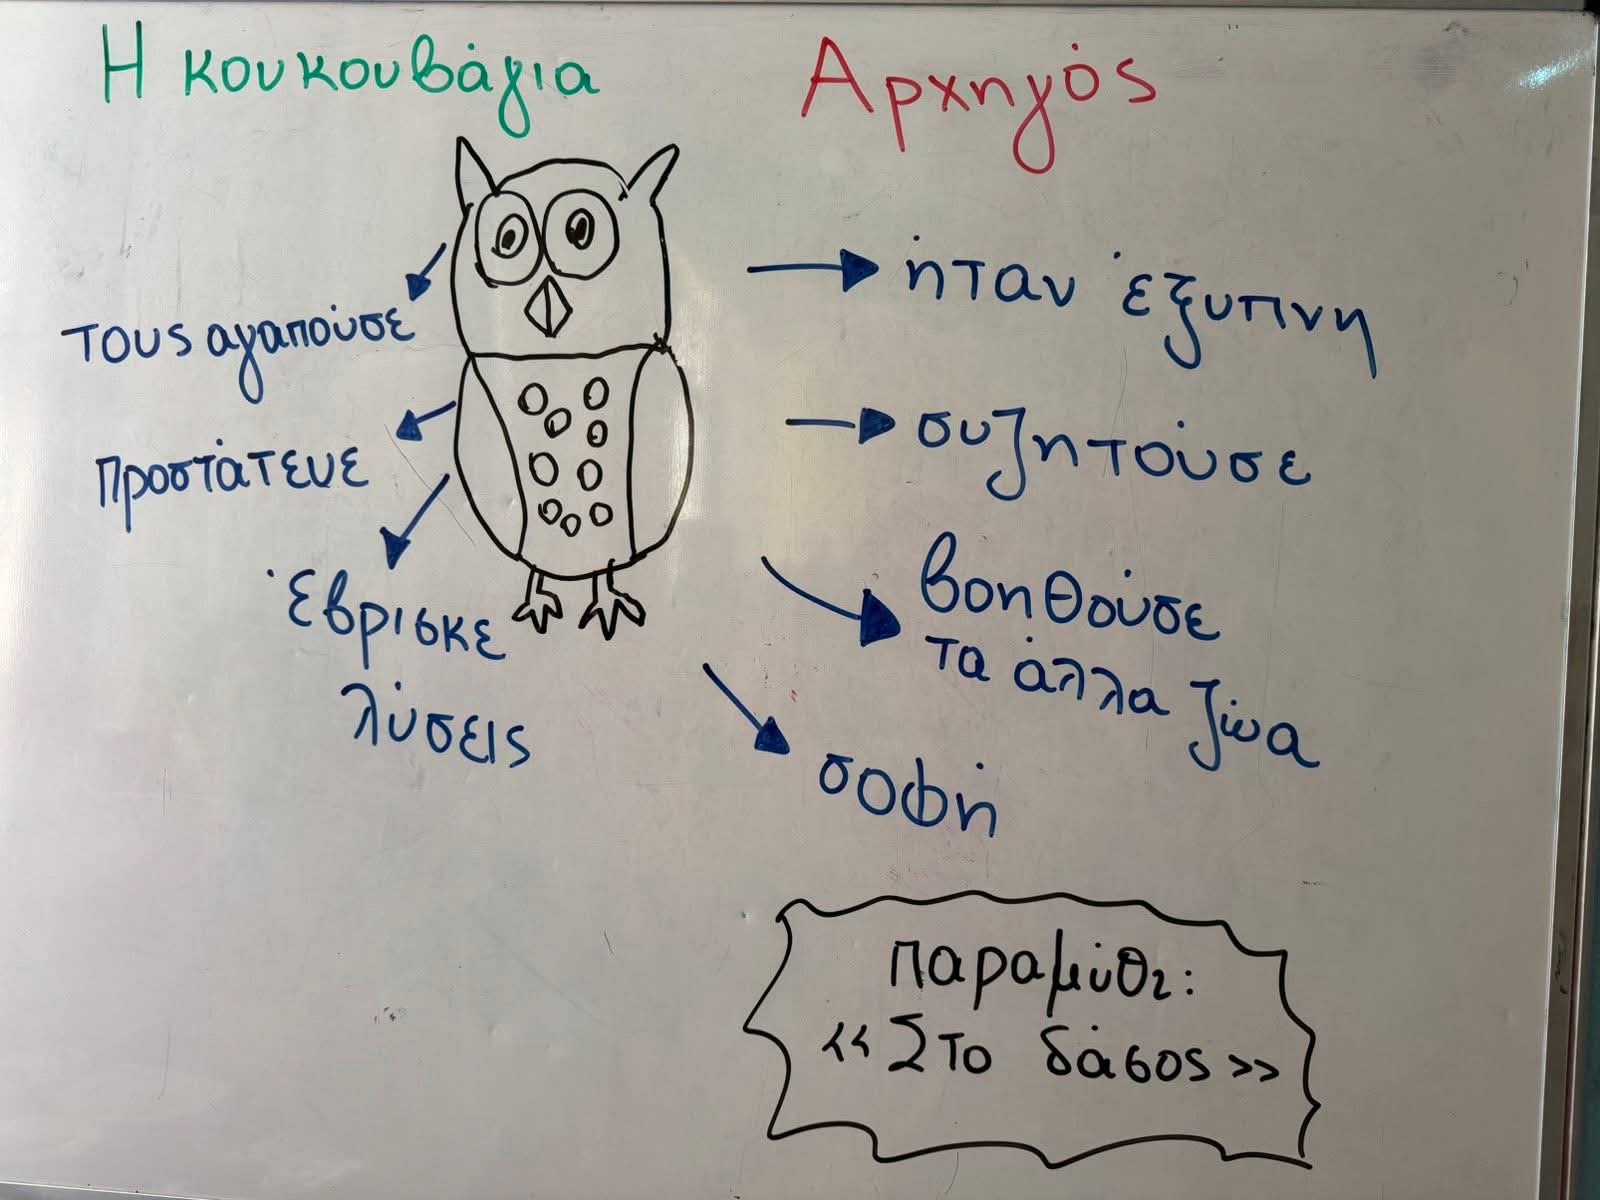 Η κουκουβάγια
Αρχηγός
τους αγαπούσε
προστάτευε
Έβρισκε
λύσεις
ήταν έξυπνη
συζητούσε
βοηθούσε
τα άλλα ζώα
σοφή
Παραμύθι:
«Στο δάσος»